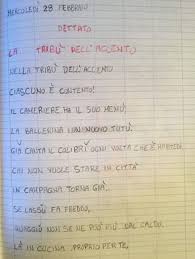 MERCOLEDÌ 28 FEBBRAIO
DETTATO
LA TRIBÙ DELL'ACCENTO
NELLA TRIBÙ DELL'ACCENTO
CIASCUNO È CONTENTO!
IL CAMERIERE HA IL SUO MENÙ,
LA BALLERINA UN NUOVO TUTÙ.
GIÀ CANTA IL COLIBRÌ OGNI VOLTA CHE È
CHI NON VUOLE STARE IN CITTÀ
IN CAMPAGNA TORNA GIÀ.
SE LASSÙ FA FREDDO,
QUAGGIÙ NON SE NE PUÒ PIÙ DAL CALDO.
LÀ IN CUCINA, PROPRIO PER TE,